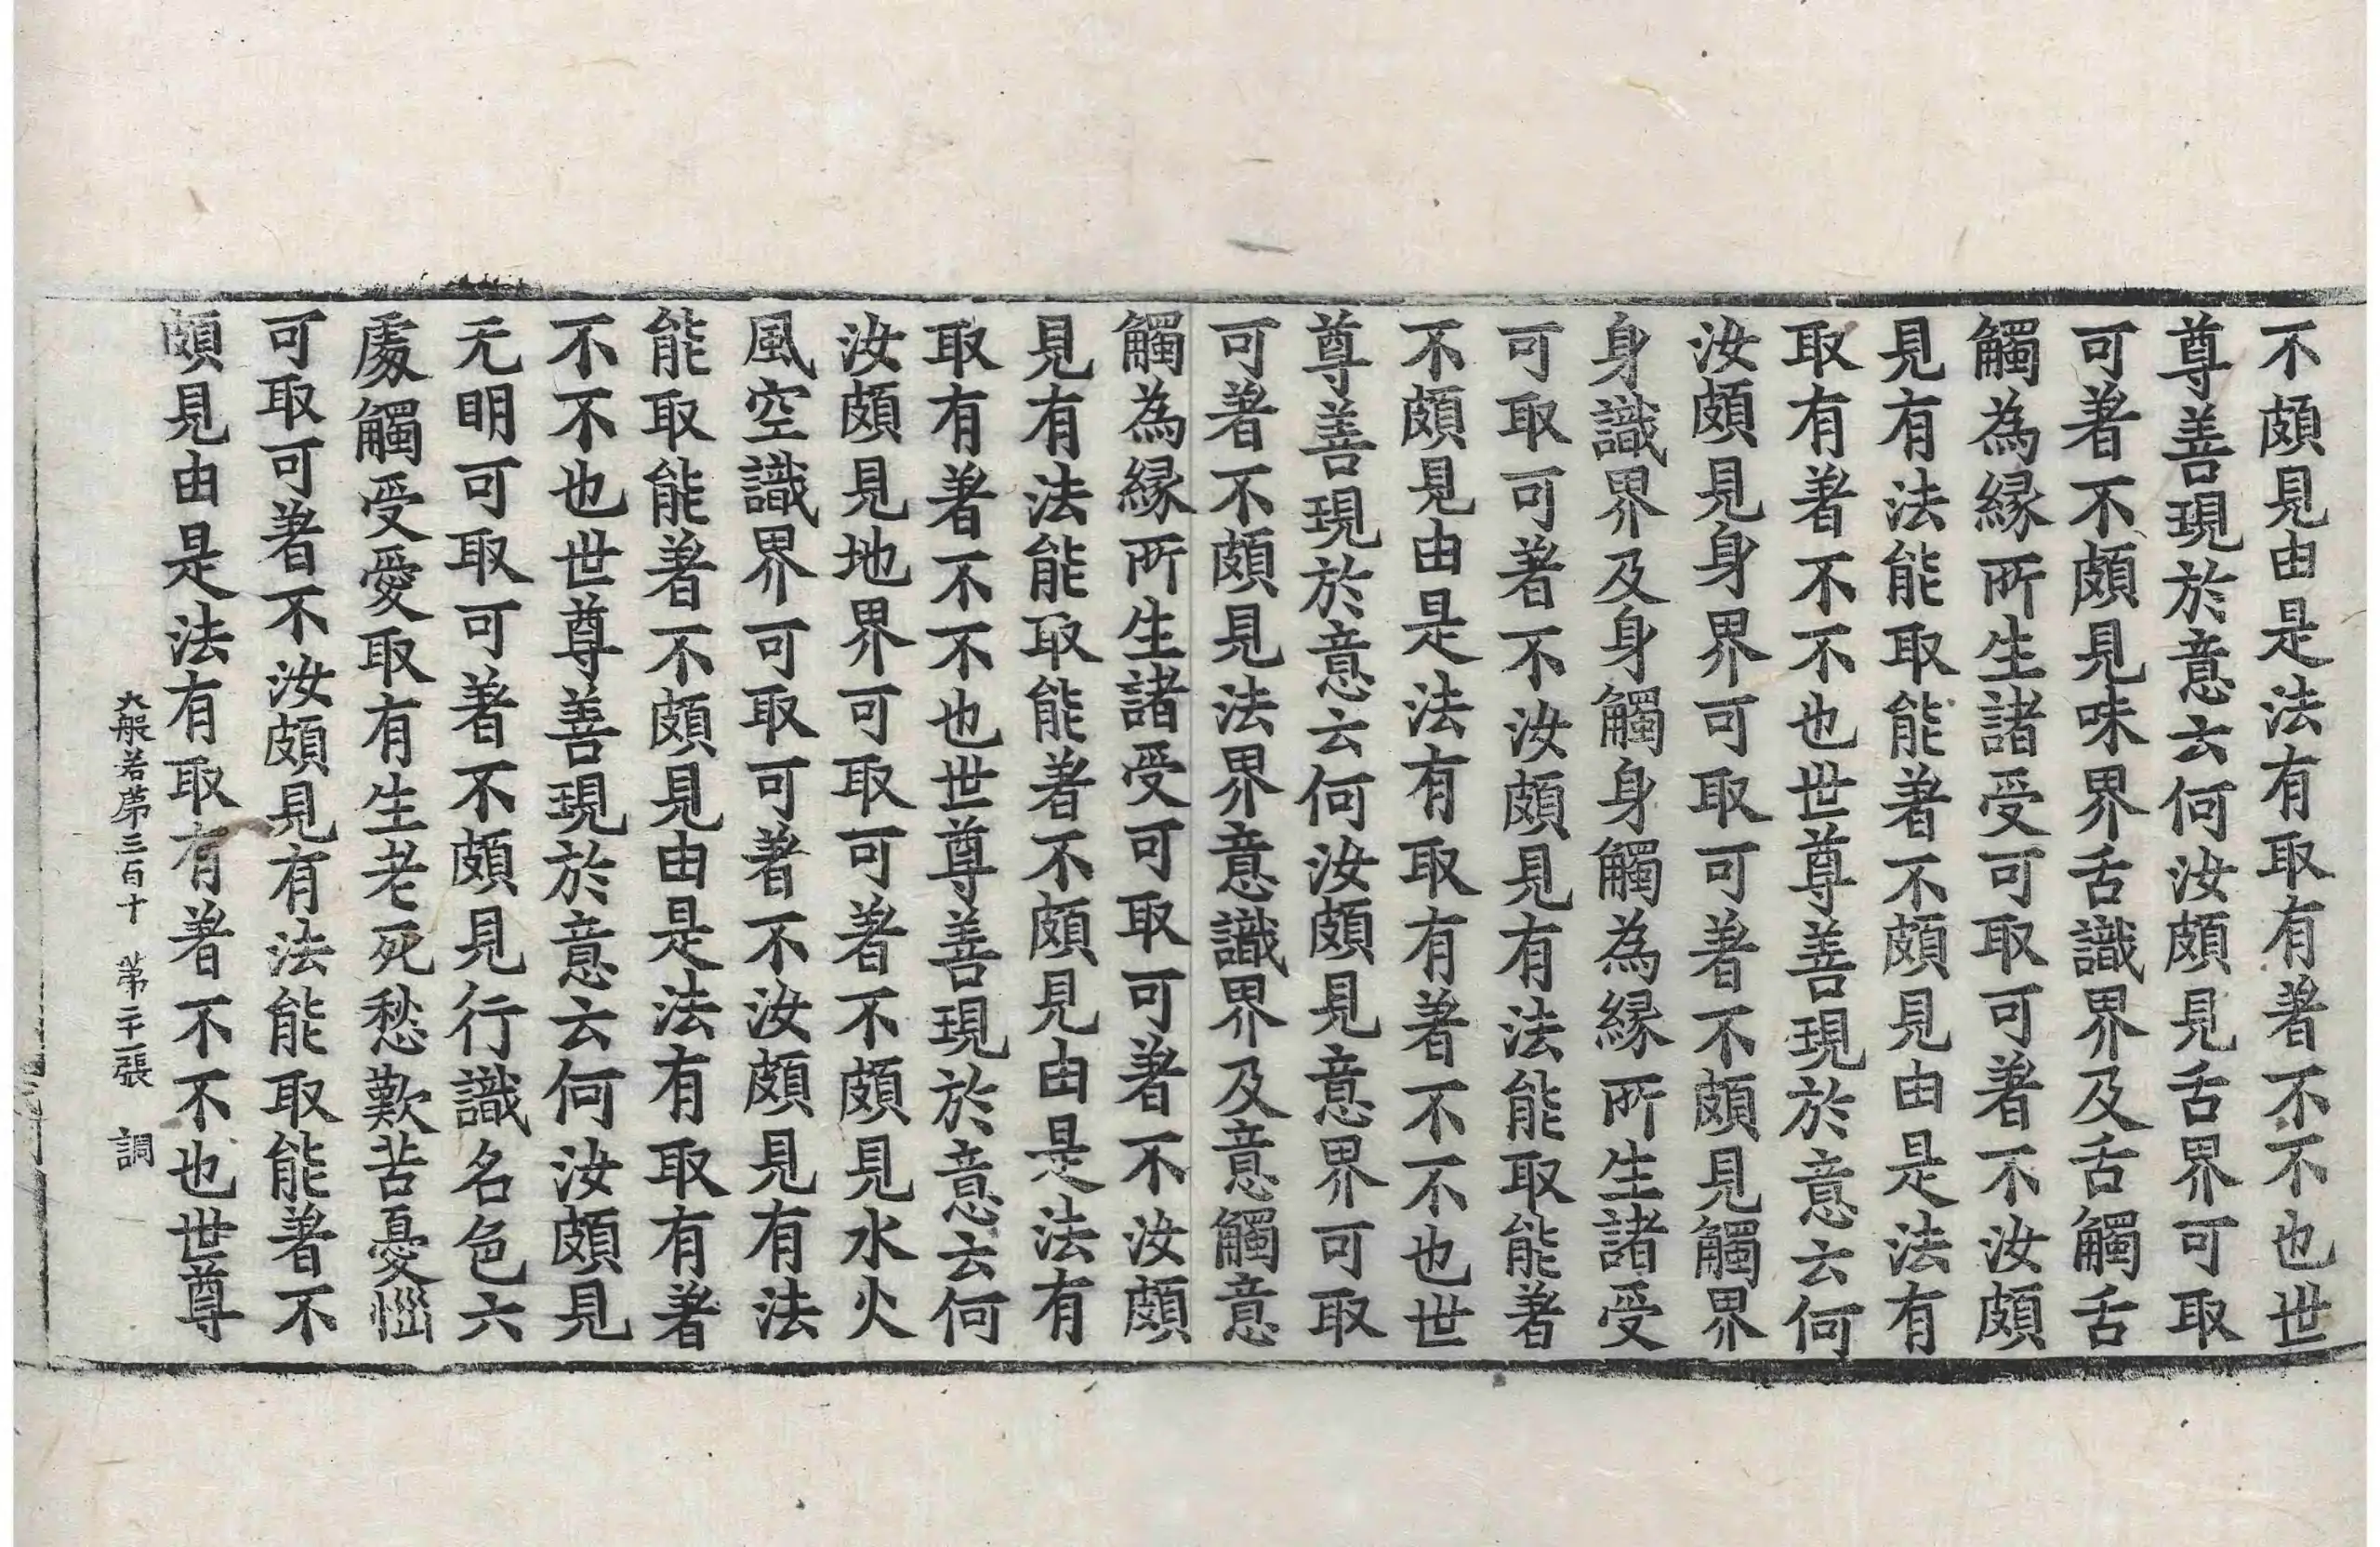 不頗見由是法有取有著不不也世
尊善現於意云何汝頗見舌界可取
可著不頗見味界舌識界及舌觸舌
觸為緣所生諸受可取可著不汝頗
見有法能取能著不頗見由是法有
取有著不不也世尊善現於意云何
汝頗見身界可取可著不頗見觸界
身識界及身觸身觸為緣所生諸受
可取可著不汝頗見有法能取能著
不頗見由是法有取有著不不也世
尊善現於意云何汝頗見意界可取
可著不頗見法界意識界及意觸意
觸為緣所生諸受可取可著不汝頗
見有法能取能著不頗見由是法有
取有著不不也世尊善現於意云何
汝頗見地界可取可著不頗見水火
風空識界可取可著不汝頗見有法
能取能著不頗見由是法有取有著
不不也世尊善現於意云何汝頗見
无明可取可著不頗見行識名色六
處觸受愛取有生老死愁歎苦憂惱
可取可著不汝頗見有法能取能著不
頗見由是法有取有著不不也世尊
大般若第三百十　第二十一張　調